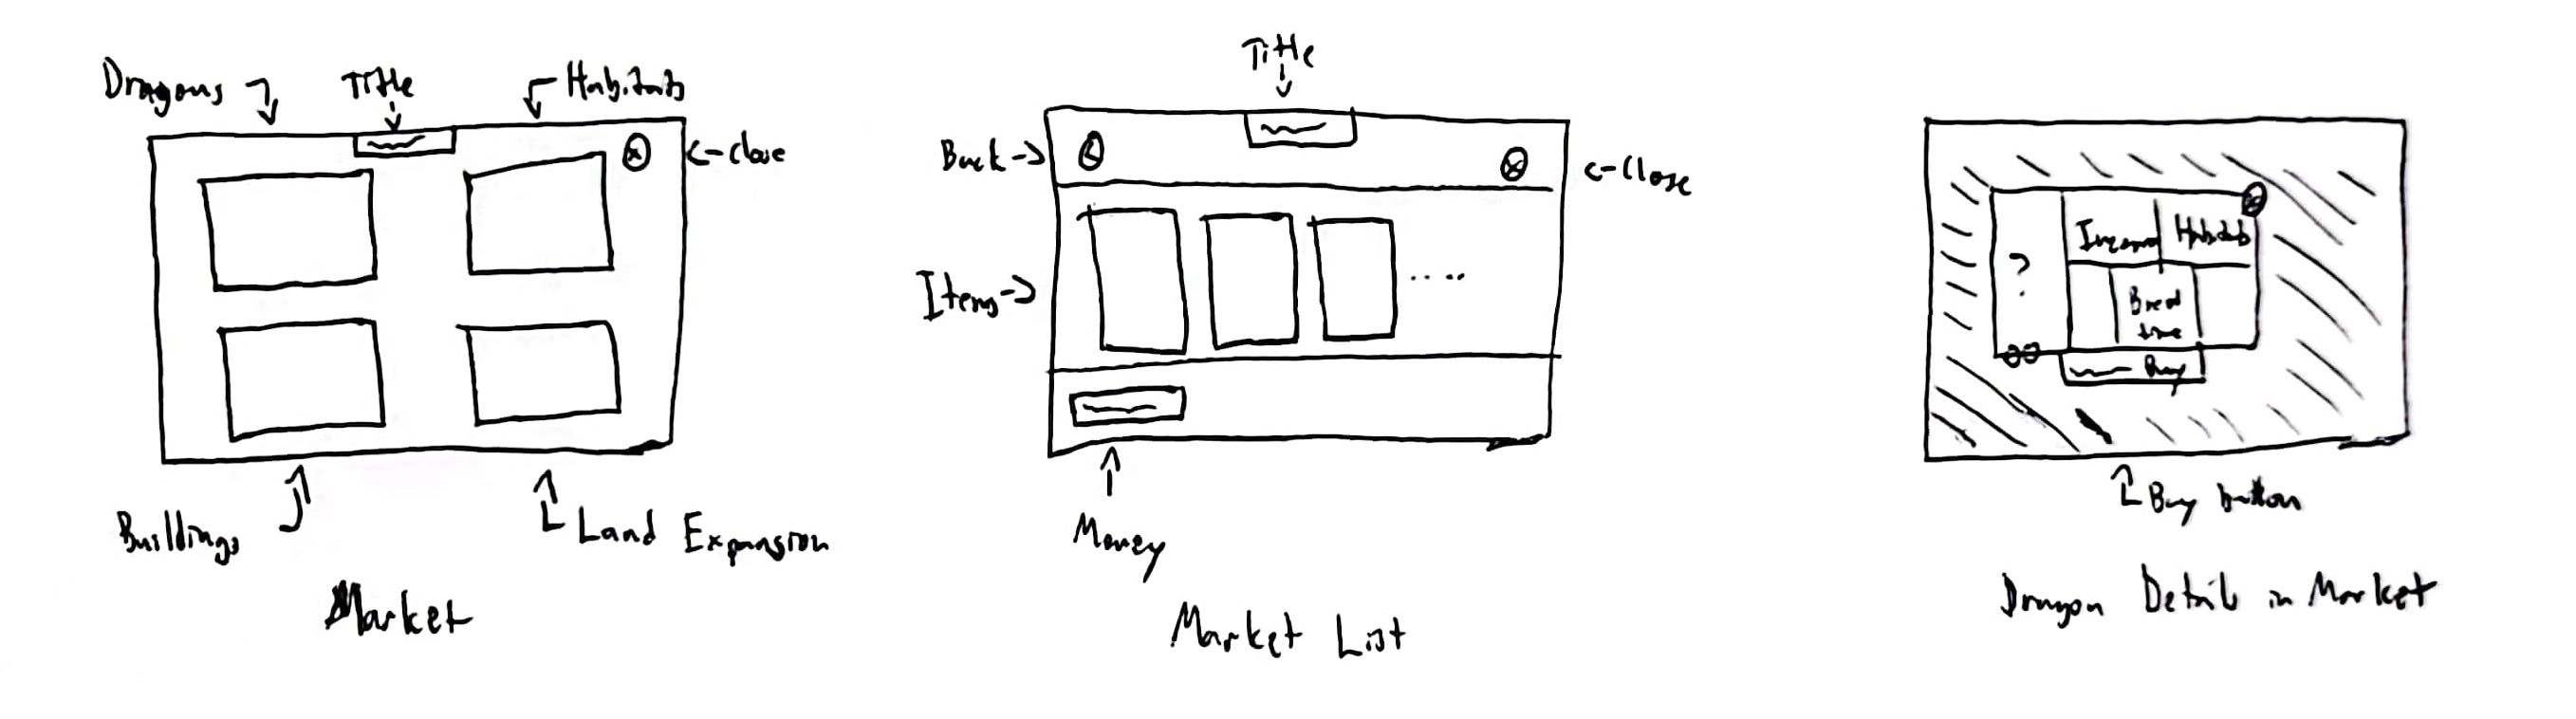 Dragons
Title
Habitats
Close
Buildings
Land Expansion
Market
Title
Back
Close
Items
Money
Market List
?
Income
Habitats
Breed
time
Buy
Buy button
Dragon Details in Market